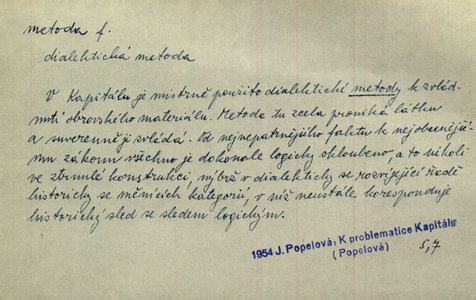 metoda f.
dialektická metoda
V Kapitálu je mistrně použito dialektické metody k zvlád-
nutí obrovského materiálu. Metoda tu zcela proniká látku
a suverenně ji zvládá. Od nejnepatrnějšího faktu k nejobecnější-
mu zákonu všechno je dokonale logicky skloubeno, a to nikoli
ve ztrnulé konstrukci, nýbrž v dialekticky se rozvíjející řadě
historicky se měnících kategorií, v níž neustále koresponduje
historický sled se sledem logickým.
1954 J. Popelová: K problematice Kapitálu
(Popelová)
5,7